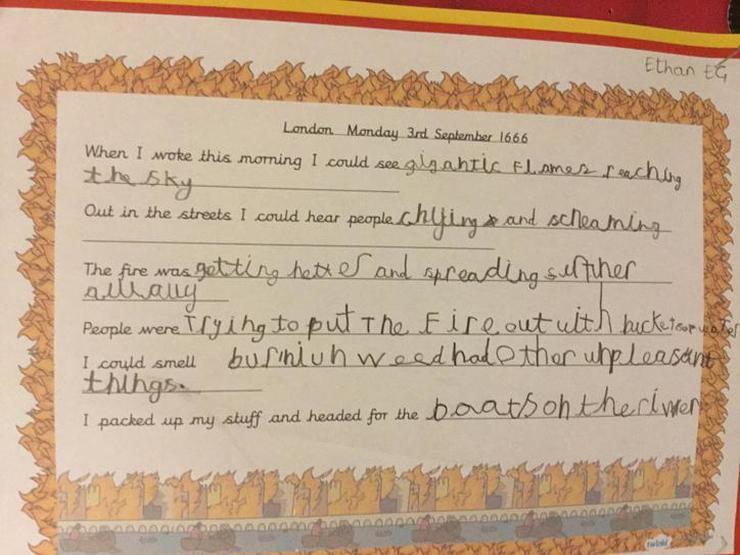 Ethan EG
London Monday 3rd September 1666
When I woke this morning I could see gigantic Flames reaching
the sky
Out in the streets I could hear people chying and scheaming
The fire was getting hotter and spreading surther
People were Trying to put The Fire out with buckets or water
I could smell burninh weed had other unpleasent
things.
I packed up my stuff and headed for the boats on the river
twinkl